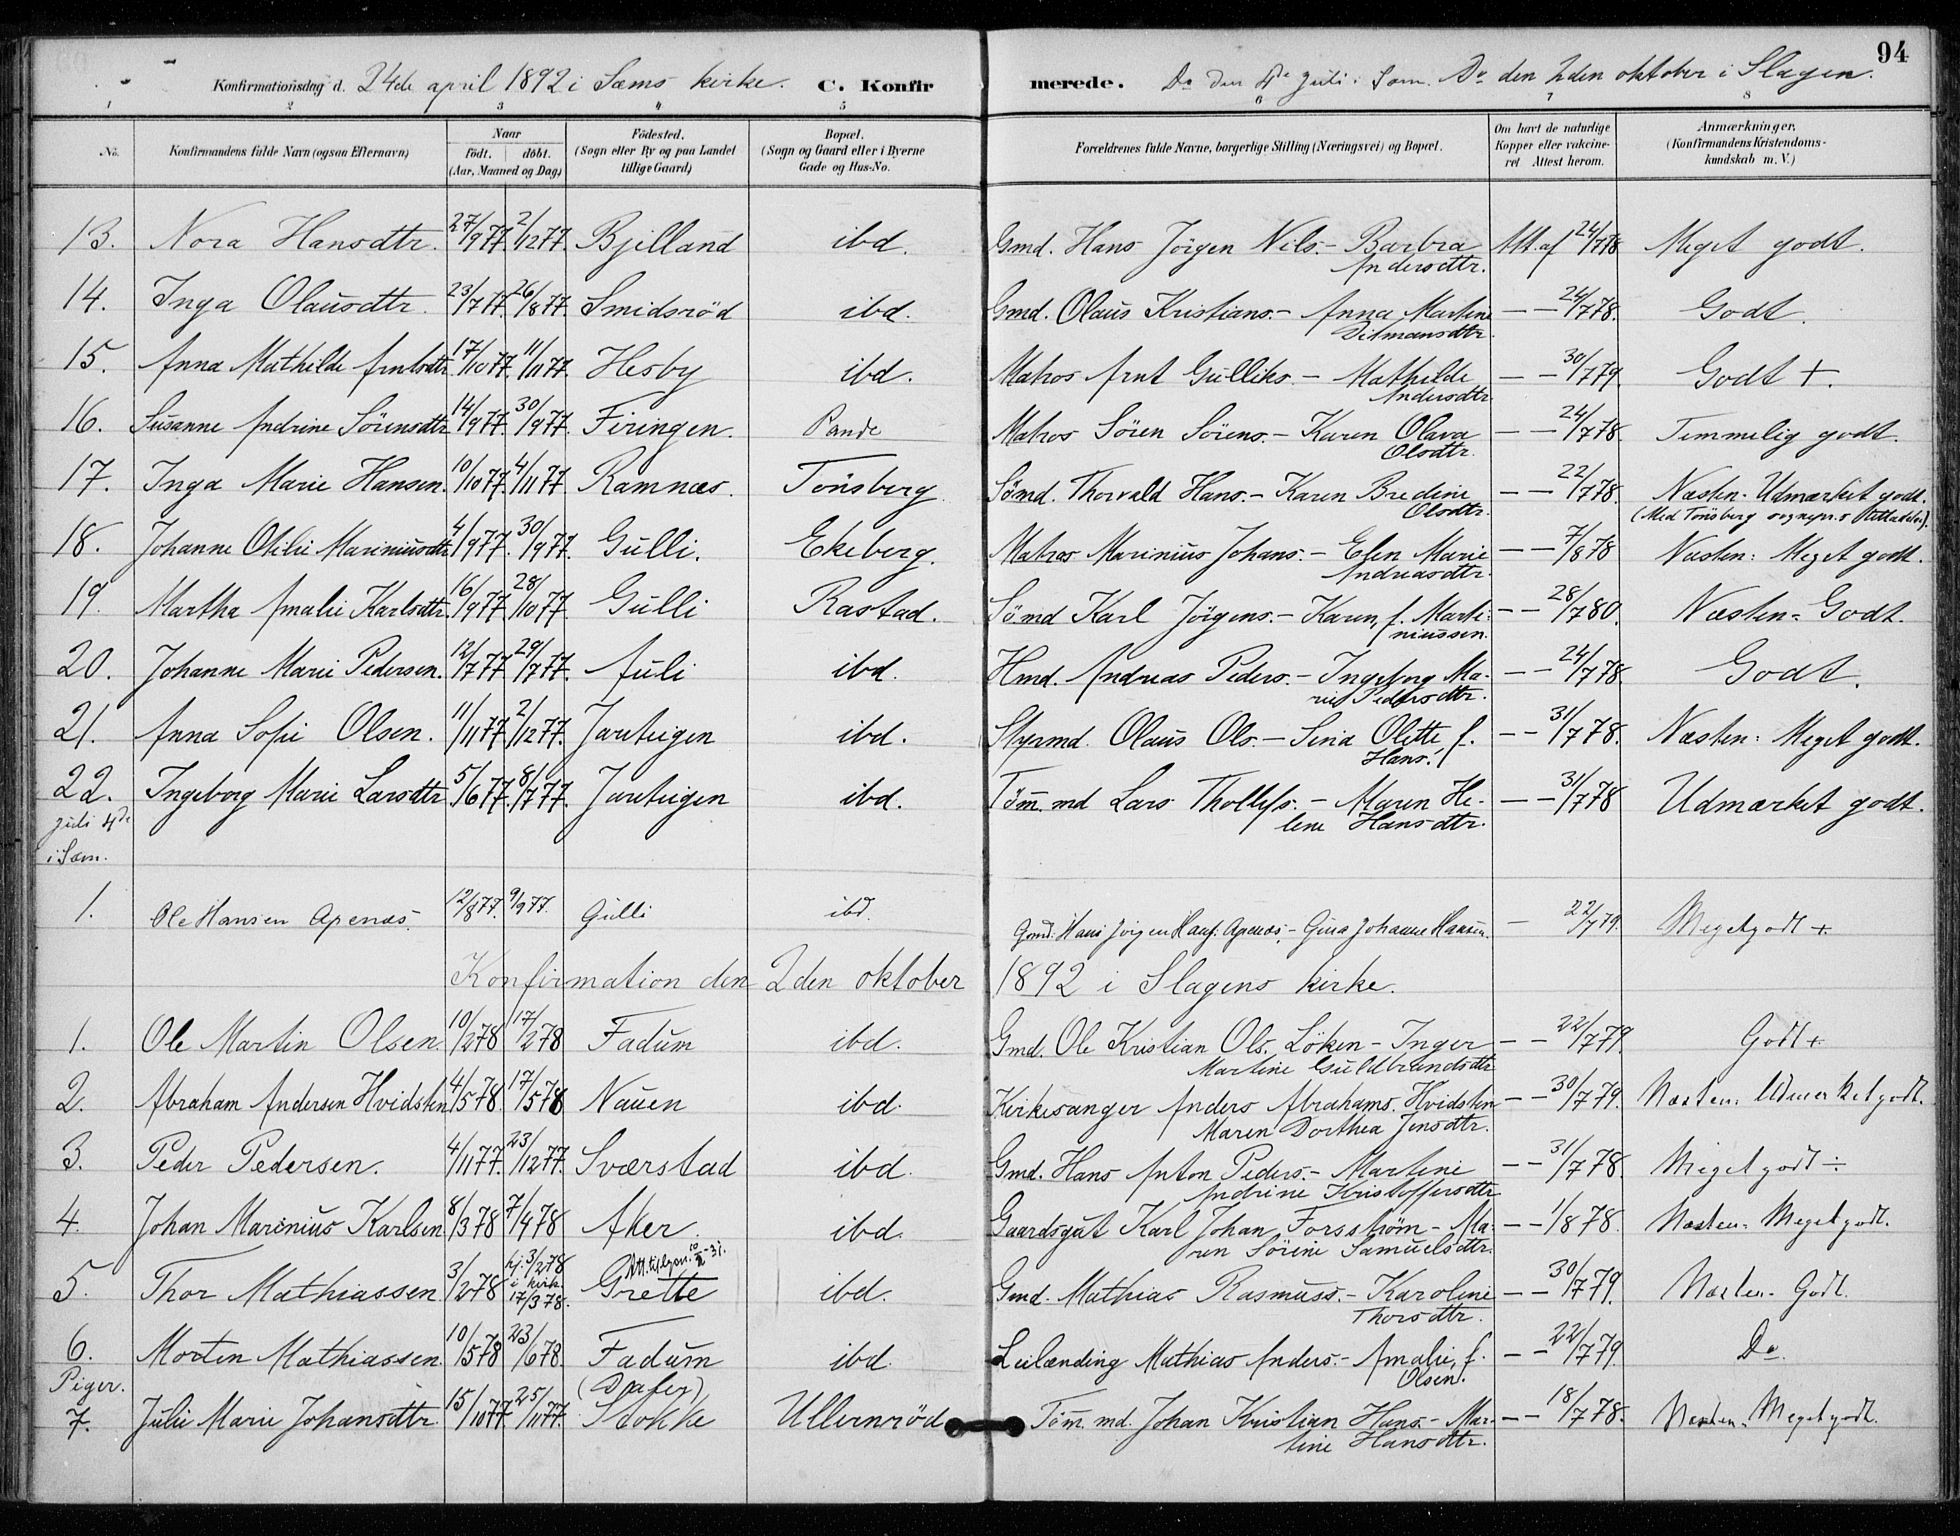 94
Konfirmationsdag d. 24de april 1892 i Sæms kirke. C. Konfirmerede. Do den 4de juli i Sæm. Do den 2den oktober i Slagen.
1 2 3 4 5 6 7 8
No. Konfirmandens fulde Navn (ogsaa Efternavn) Naar født. døbt. (Aar, Maaned og Dag) Födested. (Sogn eller By og paa Landet tillige Gaard) Bopæl. (Sogn og Gaard eller i Byerne Gade og Hus-No. Forældrenes fulde Navne, borgerlige Stilling (Næringsvei) og Bopæl. Om havt de naturlige Kopper eller vakcineret Attest herom. Anmærkninger. (Konfirmandens Kristendomskundskab m. V.)
13. Nora Hansdtr. 27/9 77. 2/12 77. Bjelland ibd. Gmd. Hans Jörgen Nils.- Barbra Att. af 24/7 78 Meget godt.
Andersdtr.
14. Inga Olausdtr. 23/7 77. 26/8 77. Smidsröd ibd. Gmd. Olaus Kristians.- Anna Martine — — 24/7 78. Godt.
Ditmansdtr.
15. Anna Mathilde Arntsdtr. 17/10 77. 11/11 77. Hesby ibd. Matros Arnt Gulliks.- Mathilde — — 30/7 79. Godt +.
Andersdtr
16. Susanne Andrine Sörensdtr 14/9 77. 30/9 77. Firingen. Pande Matros Sören Sörens.- Karen Olava — — 24/7 78. Temmelig godt.
Olsdtr.
17. Inga Marie Hansen. 10/10 77. 4/11 77. Ramnæs. Tönsberg Sömd. Thorvald Hans.- Karen Bredine — — 22/7 78. Næsten- Udmærket godt.
Olsdtr. (Med Tönsberg sognepr.s
18. Johanne Otilie Mariniusdtr 4/9 77. 30/9 77. Gulli. Ekeberg. Matros Marinius Johans.- Elen Marie — — 7/8 78 Næsten: Meget godt.
Andreasdtr.
19. Martha Amalie Karlsdtr. 16/9 77. 28/10 77. Gulli Rastad. Sömd Karl Jörgens.- Karen, f. Marti- — — 28/7 80. Næsten- Godt.
niussen.
20. Johanne Marie Pedersen. 12/7 77. 29/7 77. Auli ibd. Hmd. Andreas Peders.- Ingeborg Ma- — — 24/7 78. Godt.
rie Pedersdtr.
21. Anna Sofie Olsen. 11/11 77. 2/12 77. Jareteigen ibd. Styrmd. Olaus Ols.- Sina Olette, f. — — 31/7 78. Næsten: Meget godt.
Hans.
22. Ingeborg Marie Larsdtr 5/6 77. 8/7 77. Jareteigen ibd. Tömm. md Lars Thollefs.- Maren He- — — 31/7 78 Udmærket godt.
lene Hansdtr.
juli 4de
i Sæm.
1. Ole Hansen Apenæs. 12/8 77. 9/9 77. Gulli ibd. Gmd. Hans Jörgen Hans. Apenæs,- Gina Johanne Hansen. — 22/7 79. Megetgodt +
Konfirmation den 2den oktober 1892 i Slagens kirke.
1. Ole Martin Olsen. 10/2 78 17/2 78 Fadum ibd. Gmd. Ole Kristian Ols. Löken- Inger — — 22/7 79. Godt +
Martine Guldbrandsdtr
2. Abraham Andersen Hvidsten 4/5 78. 17/5 78 Nauen ibd. Kirkesanger Anders Abrahams. Hvidsten — — 30/7 79. Næsten: Udmerket godt.
Maren Dorthea Jensdtr.
3. Peder Pedersen. 4/11 77. 23/12 77. Sværstad ibd. Gmd. Hans Anton Peders.- Martine — — 31/7 78. Meget godt ÷
Andrine Kristoffersdtr
4. Johan Marinius Karlsen 8/3 78 7/4 78 Aker. ibd. Gaardsgut Karl Johan Forsström- Ma- — — 1/8 78. Næsten- Megetgodt.
ren Sörine Samuelsdtr.
5. Thor Mathiassen 3/2 78 hj. 3/2 78 i kirk. 17/3 78. Grette ibd. Gmd. Mathias Rasmuss.- Karoline — — 30/7 79. Næsten- Godt.
Thorsdtr.
6. Morten Mathiassen. 10/5 78 23/6 78. Fadum ibd. Leilænding Mathias Anders.- Amalie, f. — — 22/7 79. Do.
Olsen.
Piger.
7. Julie Marie Johansdtr. 15/10 77. 25/11 77. Stokke Ullernröd Tömm. md. Johan Kristian Hans.- Mar- — — 18/7 78. Næsten- Megetgodt.
tine Hansdtr.